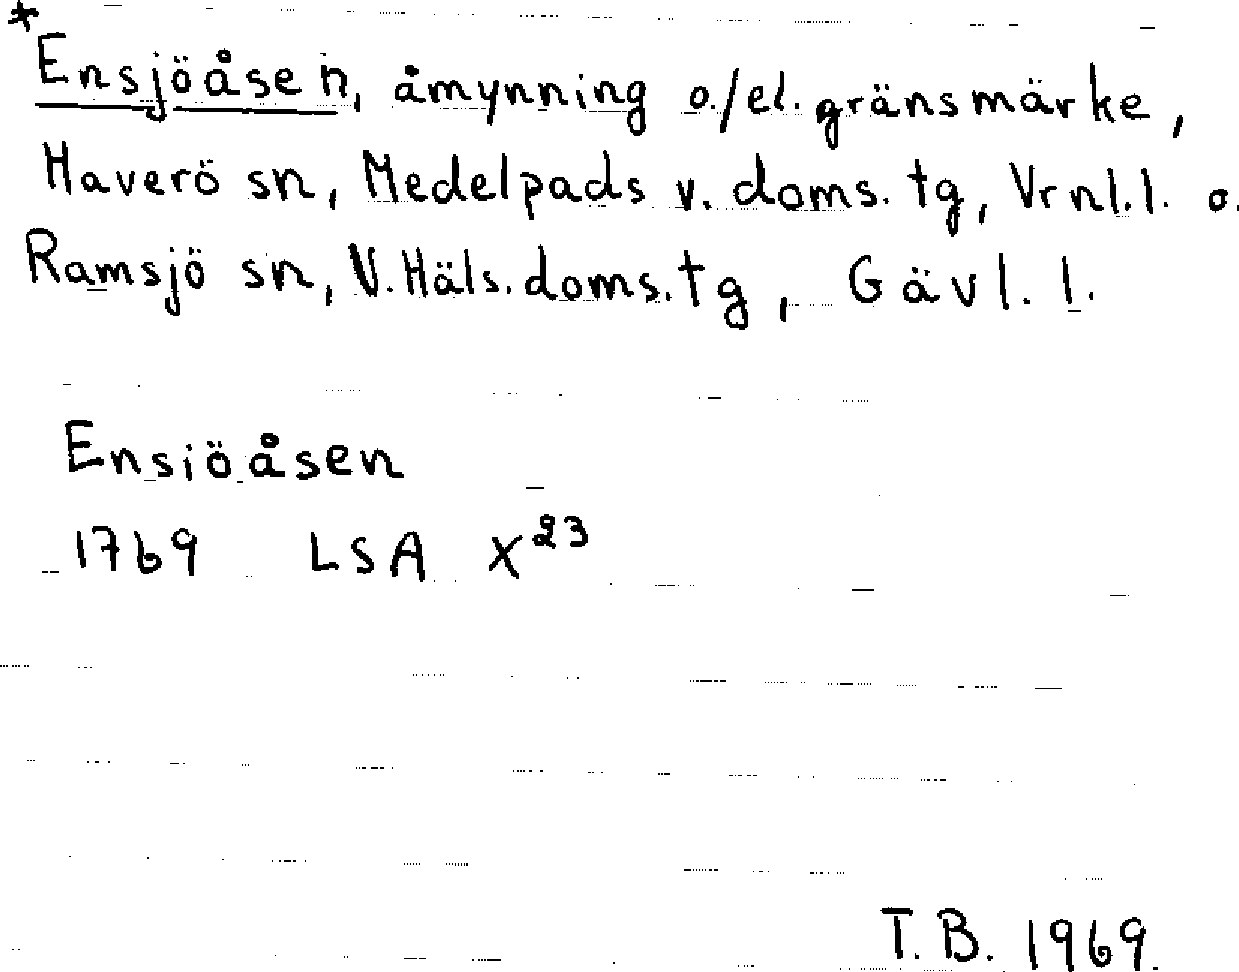 *
Ensjöåsen, åmynning o./el. gränsmärke,
Haverö sn, Medelpads v. doms. tg, Vrnl.l. o.
Ramsjö sn, V. Häls. doms. tg, Gävl. l.
Ensiöåsen
1769 LSA X²³
T.B. 1969.